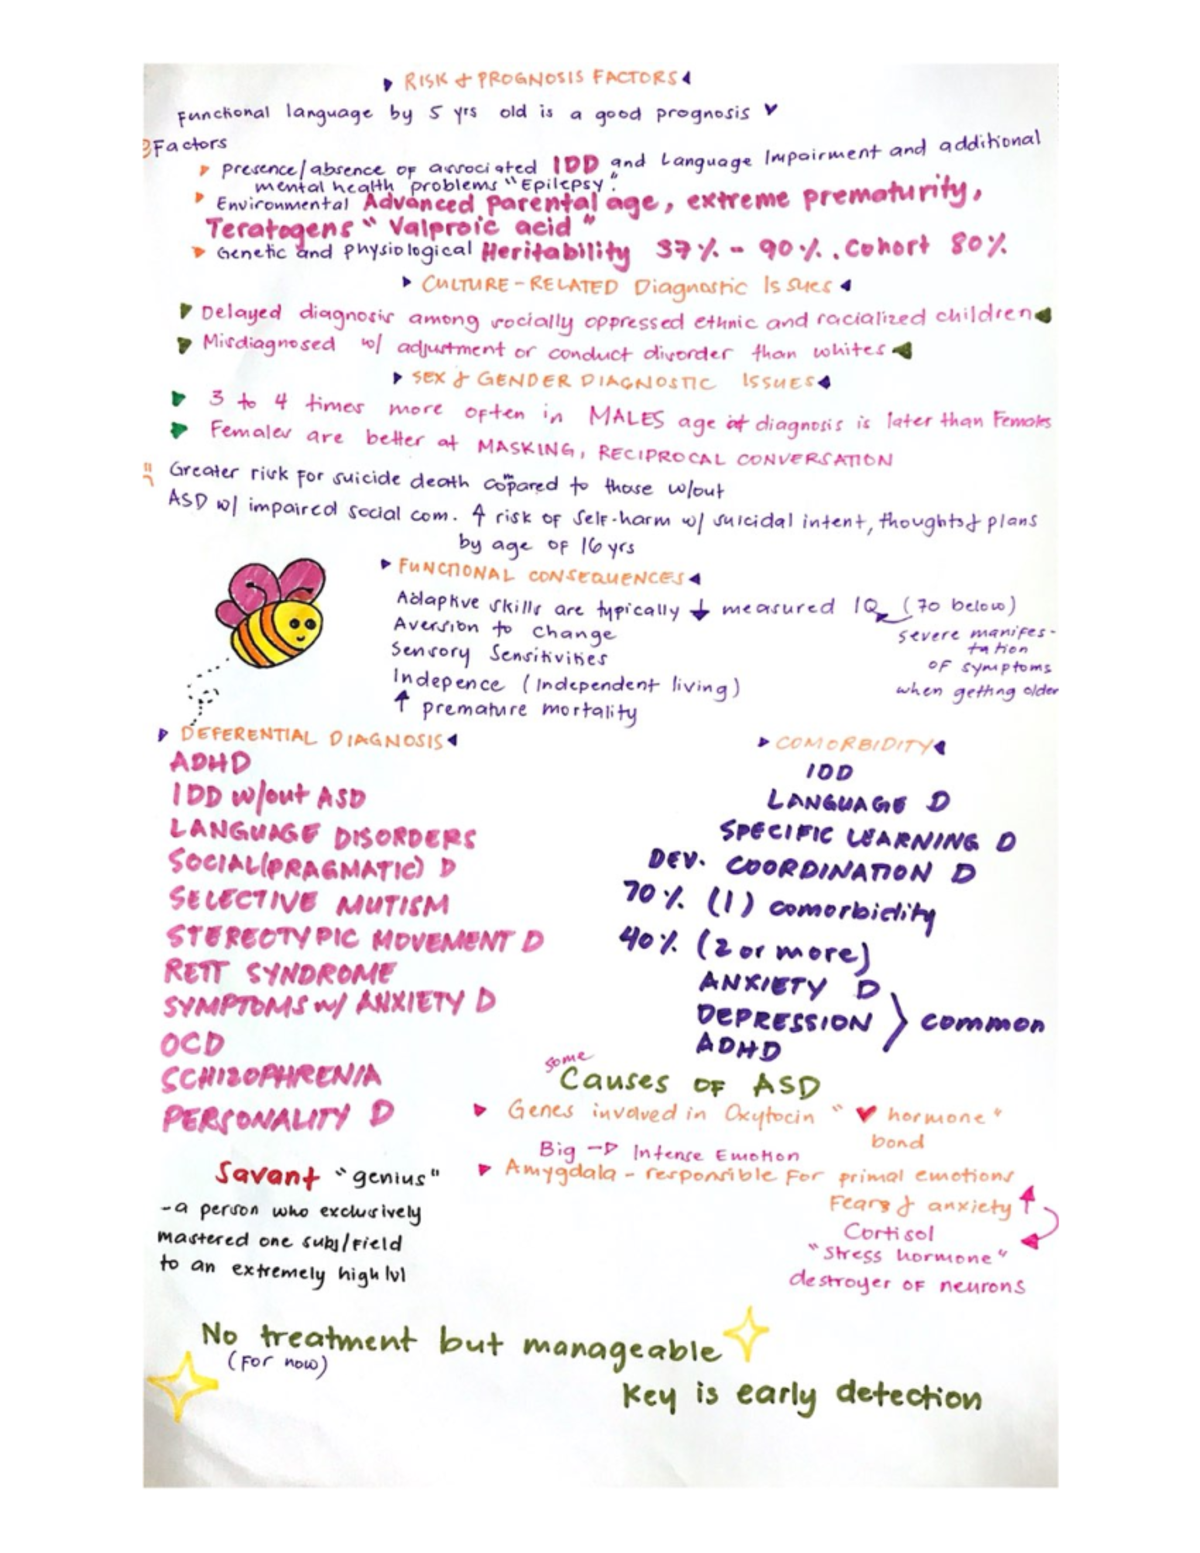 RISK & PROGNOSIS FACTORS
Functional language by 5 yrs old is a good prognosis
3 Factors
Presence/absence of associated IDD and Language Impairment and additional
mental health problems "Epilepsy".
Environmental Advanced Parental age, extreme prematurity,
Teratogens "Valproic acid"
Genetic and Physiological Heritability 37% - 90%. Cohort 80%
CULTURE-RELATED Diagnostic Issues
Delayed diagnosis among socially oppressed ethnic and racialized children
Misdiagnosed w/ adjustment or conduct disorder than whites
SEX & GENDER DIAGNOSTIC ISSUES
3 to 4 times more often in MALES age at diagnosis is later than Females
Females are better at MASKING, RECIPROCAL CONVERSATION
Greater risk for suicide death compared to those w/out
ASD w/ impaired social com. ↑ risk of Self-harm w/ suicidal intent, thoughts & plans
by age of 16 yrs
FUNCTIONAL CONSEQUENCES
Adaptive skills are typically ↓ measured IQ (70 below)
Aversion to change
severe manifes-
tation
Sensory Sensitivities
OF symptoms
Indepence (Independent living)
when getting older
↑ premature mortality
DEFERENTIAL DIAGNOSIS
ADHD
IDD w/out ASD
LANGUAGE DISORDERS
SOCIAL(PRAGMATIC) D
SELECTIVE MUTISM
STEREOTYPIC MOVEMENT D
RETT SYNDROME
SYMPTOMS w/ ANXIETY D
OCD
SCHIZOPHRENIA
PERSONALITY D
COMORBIDITY
IDD
LANGUAGE D
SPECIFIC LEARNING D
DEV. COORDINATION D
70% (1) comorbidity
40% (2 or more)
ANXIETY D
DEPRESSION
common
ADHD
some
Causes OF ASD
Genes involved in Oxytocin "♥ hormone"
bond
Big → Intense Emotion
Amygdala - responsible For primal emotions
Fears & anxiety ↑
Cortisol
"Stress hormone"
destroyer OF neurons
Savant "genius"
- a person who exclusively
mastered one subj/Field
to an extremely high lvl
No treatment but manageable
(For now)
Key is early detection